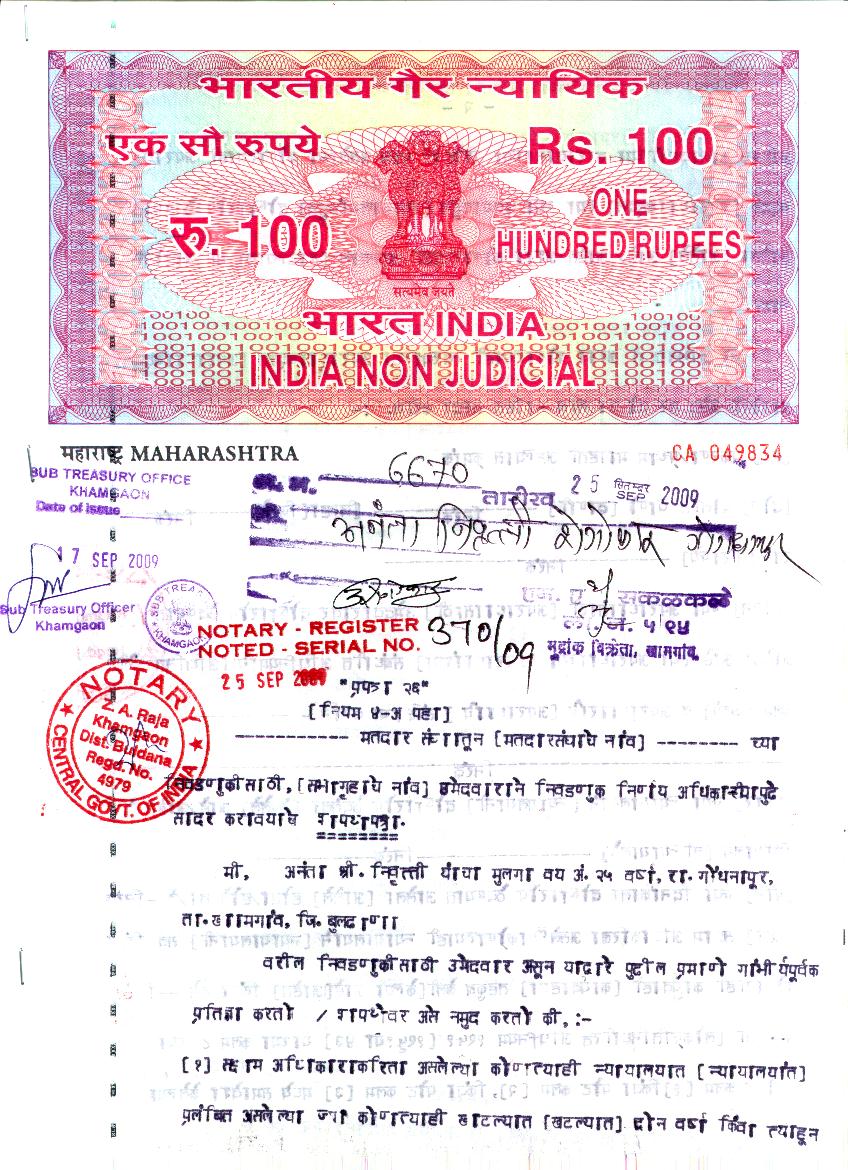 भारतीय गैर न्यायिक
एक सौ रुपये
Rs. 100
रु. 100
ONE
HUNDRED RUPEES
सत्यमेव जयते
भारत INDIA
INDIA NON JUDICIAL
महाराष्ट्र MAHARASHTRA
CA 049834
SUB TREASURY OFFICE
KHAMGAON
Date of issue
17 SEP 2009
Sub Treasury Officer
Khamgaon
6670
तारीख 25 सितम्बर SEP 2009
अनंता निवृत्ती
सकळकळे
नं. ५९५
मुद्रांक विक्रेता, खामगांव.
NOTARY - REGISTER
NOTED - SERIAL NO. 370/09
25 SEP 2009
NOTARY
Z. A. Raja
Khamgaon
Dist. Buldana
Regd. No.
4979
CENTRAL GOVT. OF INDIA
"प्रपत्र २६"
[नियम ४-अ पहा]
---------- मतदार संघातून [मतदारसंघाचे नांव] -------- च्या
निवडणुकीसाठी, [सभागृहाचे नांव] उमेदवाराने निवडणुक निर्णय अधिकाऱ्यापुढे
सादर करावयाचे शपथपत्र.
मी, अनंता श्री. निवृत्ती यांचा मुलगा वय अं. २५ वर्षा, रा. गोंधनापूर,
ता. खामगांव, जि. बुलढाणा
वरील निवडणुकीसाठी उमेदवार असून याद्वारे पुढील प्रमाणे गांभीर्यपूर्वक
प्रतिज्ञा करतो / शपथेवर असे नमुद करतो की, :-
[१] सक्षाम अधिकाराकरिता असलेल्या कोणत्याही न्यायालयात [न्यायालयांत]
प्रलंबित असलेल्या ज्या कोणत्याही खटल्यात [खटल्यात] दोन वर्षा किंवा त्याहून